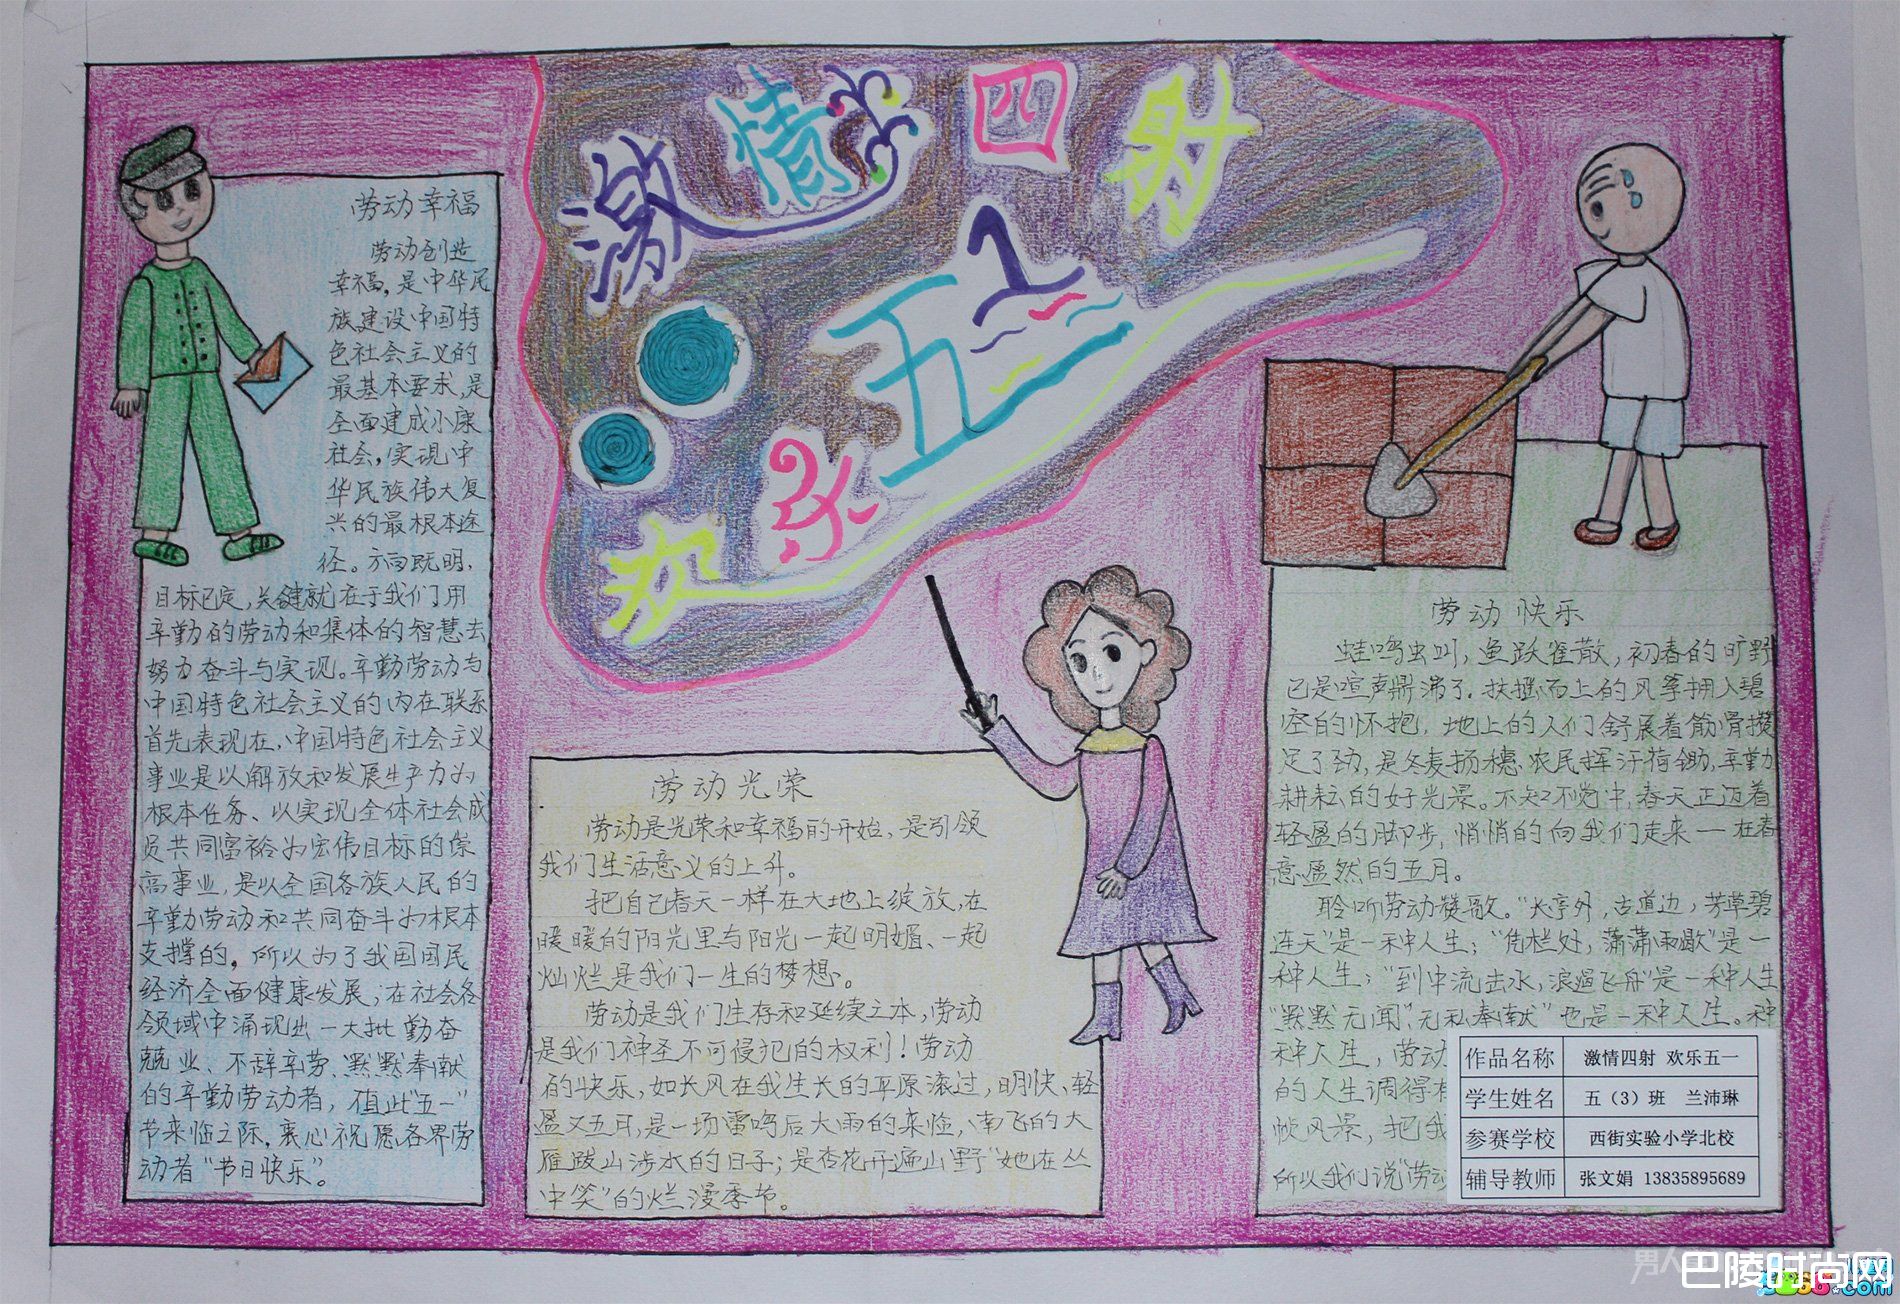 激情四射
欢乐五一
劳动幸福
劳动创造
幸福,是中华民
族建设中国特
色社会主义的
最基本要求,是
全面建成小康
社会,实现中
华民族伟大复
兴的最根本途
径。方向既明,
目标已定,关键就在于我们用
辛勤的劳动和集体的智慧去
努力奋斗与实现。辛勤劳动与
中国特色社会主义的内在联系
首先表现在,中国特色社会主义
事业是以解放和发展生产力为
根本任务、以实现全体社会成
员共同富裕为宏伟目标的崇
高事业,是以全国各族人民的
辛勤劳动和共同奋斗为根本
支撑的。所以为了我国国民
经济全面健康发展,在社会各
领域中涌现出一大批勤奋
兢业、不辞辛劳、默默奉献
的辛勤劳动者,值此“五一”
节来临之际,衷心祝愿各界劳
动者“节日快乐”。
劳动光荣
劳动是光荣和幸福的开始,是引领
我们生活意义的上升。
把自己春天一样在大地上绽放,在
暖暖的阳光里与阳光一起明媚、一起
灿烂是我们一生的梦想。
劳动是我们生存和延续之本,劳动
是我们神圣不可侵犯的权利!劳动
的快乐,如长风在我生长的平原滚过,明快、轻
盈又五月,是一场雷鸣后大雨的来临,南飞的大
雁跋山涉水的日子;是杏花开遍山野“她在丛
中笑”的烂漫季节。
劳动快乐
蛙鸣虫叫,鱼跃雀散,初春的旷野
已是喧声鼎沸了.扶摇而上的风筝拥入碧
空的怀抱,地上的人们舒展着筋骨攒
足了劲,是冬麦扬穗.农民挥汗荷锄,辛勤
耕耘的好光景。不知不觉中,春天正迈着
轻盈的脚步,悄悄的向我们走来一在春
意盈然的五月。
聆听劳动赞歌。“长亭外,古道边,芳草碧
连天”是一种人生;“凭栏处,潇潇雨歇”是一
种人生;“到中流击水,浪遏飞舟”是一种人生
“默默无闻”,“无私奉献”也是一种人生。种
种人生,劳动
的人生调得有
帧风景,把我
所以我们说“劳动
作品名称 激情四射 欢乐五一
学生姓名 五（3）班 兰沛琳
参赛学校 西街实验小学北校
辅导教师 张文娟 13835895689
巴陵时尚网